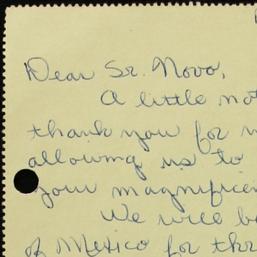 Dear Sr. Novo,
A little not
thank you for
allowing us to
your magnificen
We will b
of Mexico for thr